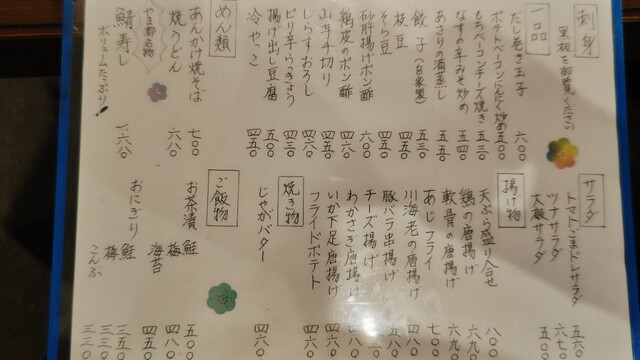 刺身
黒板を御覧ください
一品
だし巻き玉子 六〇〇
ポテトベーコンにんにく炒め 五〇〇
もちベーコンチーズ焼き 五三〇
なすの辛みそ炒め 五四〇
あさりの酒蒸し 五五〇
餃子(自家製) 五三〇
枝豆 四五〇
そら豆 四五〇
砂肝揚げポン酢 六〇〇
鶏皮のポン酢 四六〇
山芋千切り 四五〇
しらすおろし 四六〇
ピリ辛らっきょう 四三〇
揚げ出し豆腐 五五〇
冷やっこ 四五〇
めん類
あんかけ焼そば 七〇〇
焼うどん 六八〇
やま都名物
鯖寿し 一、六八〇
ボリュームたっぷり!
サラダ
トマトごまドレサラダ 五六〇
ツナサラダ 六七〇
大根サラダ 五五〇
揚げ物
天ぷら盛り合せ 八〇〇
鶏の唐揚げ 六九〇
軟骨の唐揚げ 六九〇
あじフライ 七〇〇
川海老の唐揚げ 四八〇
豚バラ串揚げ 五八〇
チーズ揚げ
わかさぎ唐揚げ 四八〇
いか下足唐揚げ
フライドポテト 四六〇
焼き物
じゃがバター 四六〇
ご飯物
お茶漬 鮭 五〇〇
梅 四八〇
海苔 四五〇
おにぎり 鮭 三五〇
梅 三三〇
こんぶ 三三〇